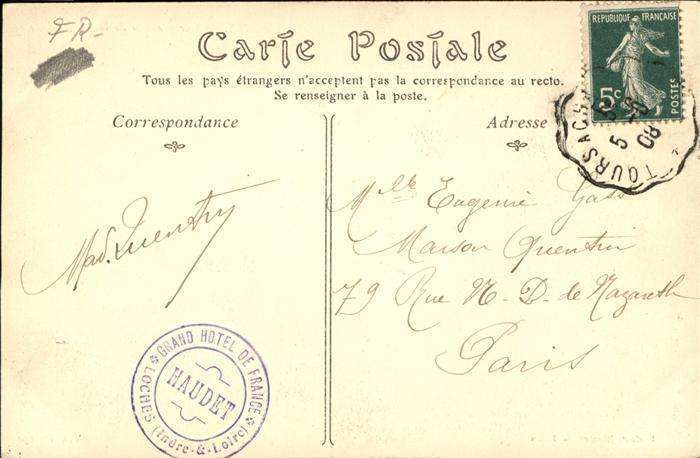 FR-
Carte Postale
Tous les pays étrangers n'acceptent pas la correspondance au recto.
Se renseigner à la poste.
Correspondance
Adresse
REPUBLIQUE FRANÇAISE
5c
POSTES
TOURS A CH
5
08
Mad. Quentin
Mlle Eugenie
Maison Quentin
79 Rue N-D-de Nazareth
Paris
GRAND HOTEL DE FRANCE
HAUDET
LOCHES (Indre-&-Loire)